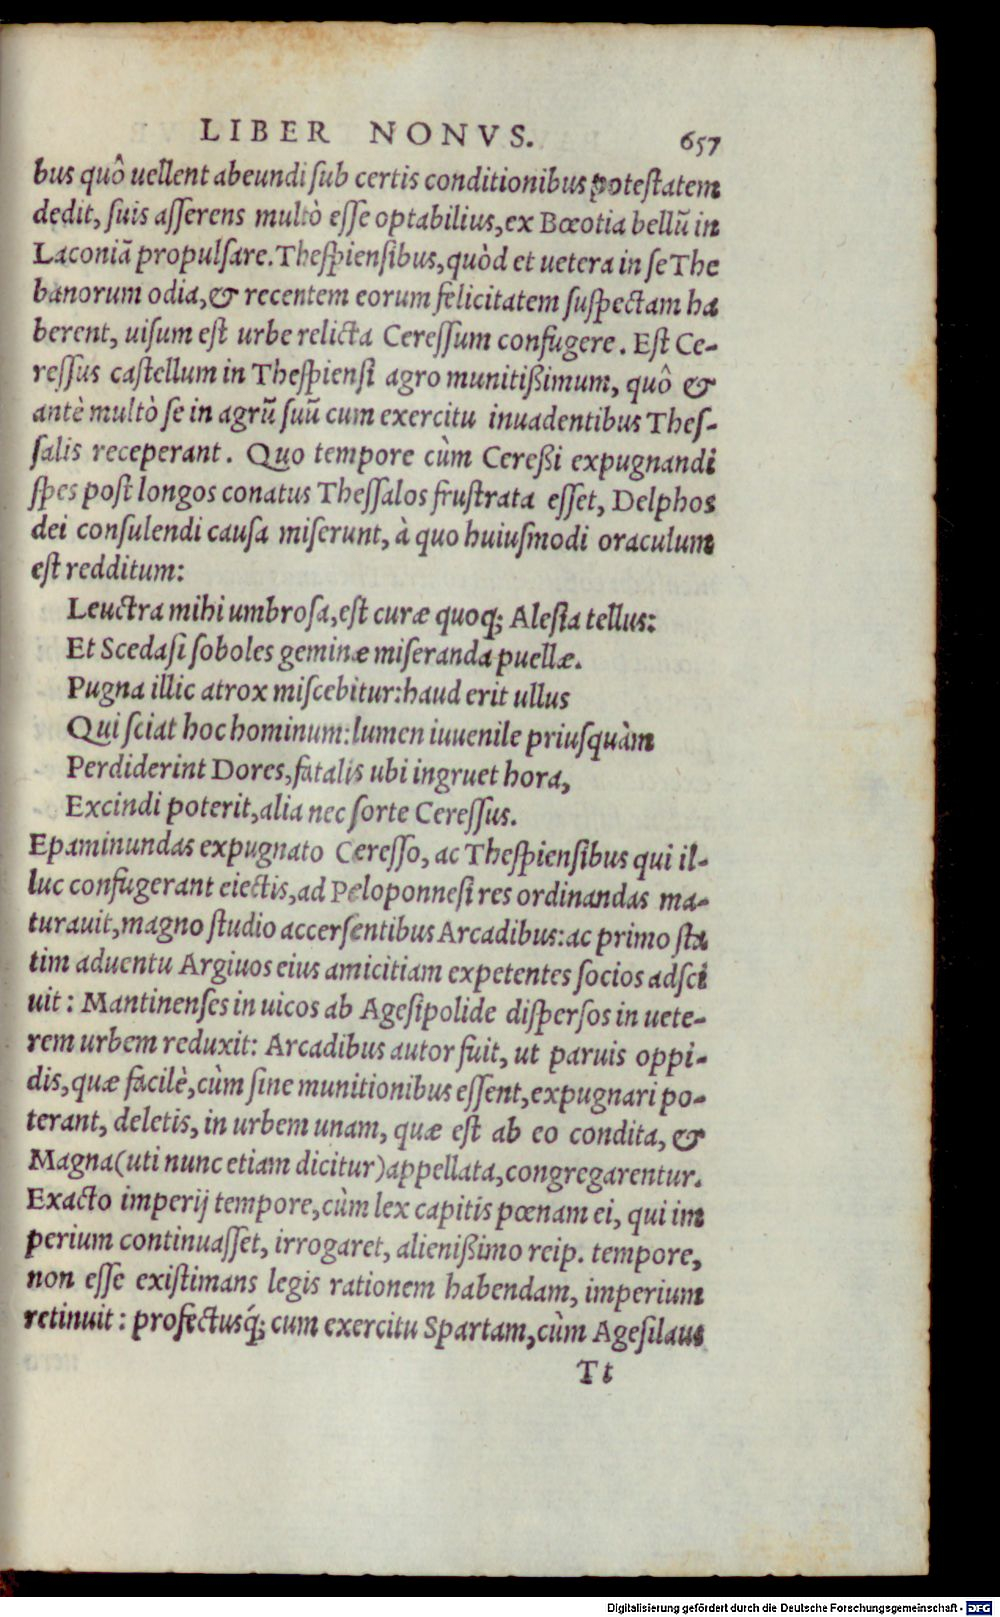 LIBER NONVS. 657
bus quô uellent abeundi sub certis conditionibus potestatem
dedit, suis asserens multò esse optabilius, ex Bœotia bellũ in
Laconiã propulsare. Thespiensibus, quòd et uetera in se The
banorum odia, & recentem eorum felicitatem suspectam ha
berent, uisum est urbe relicta Ceressum confugere. Est Ce-
ressus castellum in Thespiensi agro munitißimum, quô &
antè multò se in agrũ suũ cum exercitu inuadentibus Thes-
salis receperant. Quo tempore cùm Cereßi expugnandi
spes post longos conatus Thessalos frustrata esset, Delphos
dei consulendi causa miserunt, à quo huiusmodi oraculum
est redditum:
Leuctra mihi umbrosa, est curæ quoq; Alesia tellus:
Et Scedasi soboles geminæ miseranda puellæ.
Pugna illic atrox miscebitur: haud erit ullus
Qui sciat hoc hominum: lumen iuuenile priusquàm
Perdiderint Dores, fatalis ubi ingruet hora,
Excindi poterit, alia nec sorte Ceressus.
Epaminundas expugnato Ceresso, ac Thespiensibus qui il-
luc confugerant eiectis, ad Peloponnesi res ordinandas ma-
turauit, magno studio accersentibus Arcadibus: ac primo sta
tim aduentu Argiuos eius amicitiam expetentes socios adsci
uit: Mantinenses in uicos ab Agesipolide dispersos in uete-
rem urbem reduxit: Arcadibus autor fuit, ut paruis oppi-
dis, quæ facilè, cùm sine munitionibus essent, expugnari po-
terant, deletis, in urbem unam, quæ est ab eo condita, &
Magna (uti nunc etiam dicitur) appellata, congregarentur.
Exacto imperij tempore, cùm lex capitis pœnam ei, qui im
perium continuasset, irrogaret, alienißimo reip. tempore,
non esse existimans legis rationem habendam, imperium
retinuit: profectusq́; cum exercitu Spartam, cùm Agesilaus
Tt
Digitalisierung gefördert durch die Deutsche Forschungsgemeinschaft - DFG